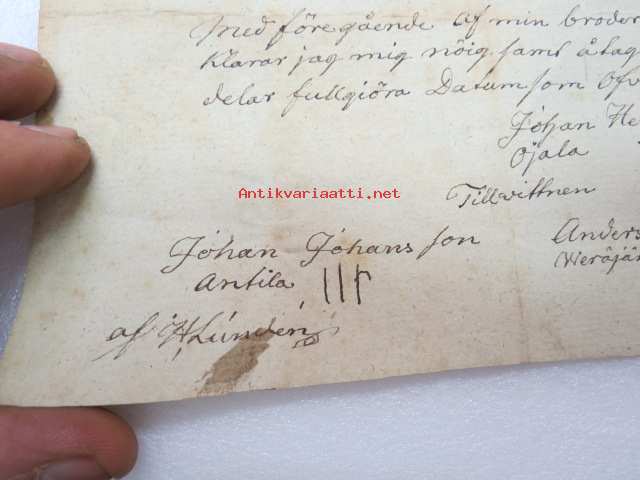 Med före gående af min broder
klarar jag mig nöig samt åtag
delar fullgiöra Datum som Ofv
Johan He
Ojala
Antikvariaatti.net
Tillvittnen
Johan Johans son
Antila
Anders
Weräjän
af H Lundén